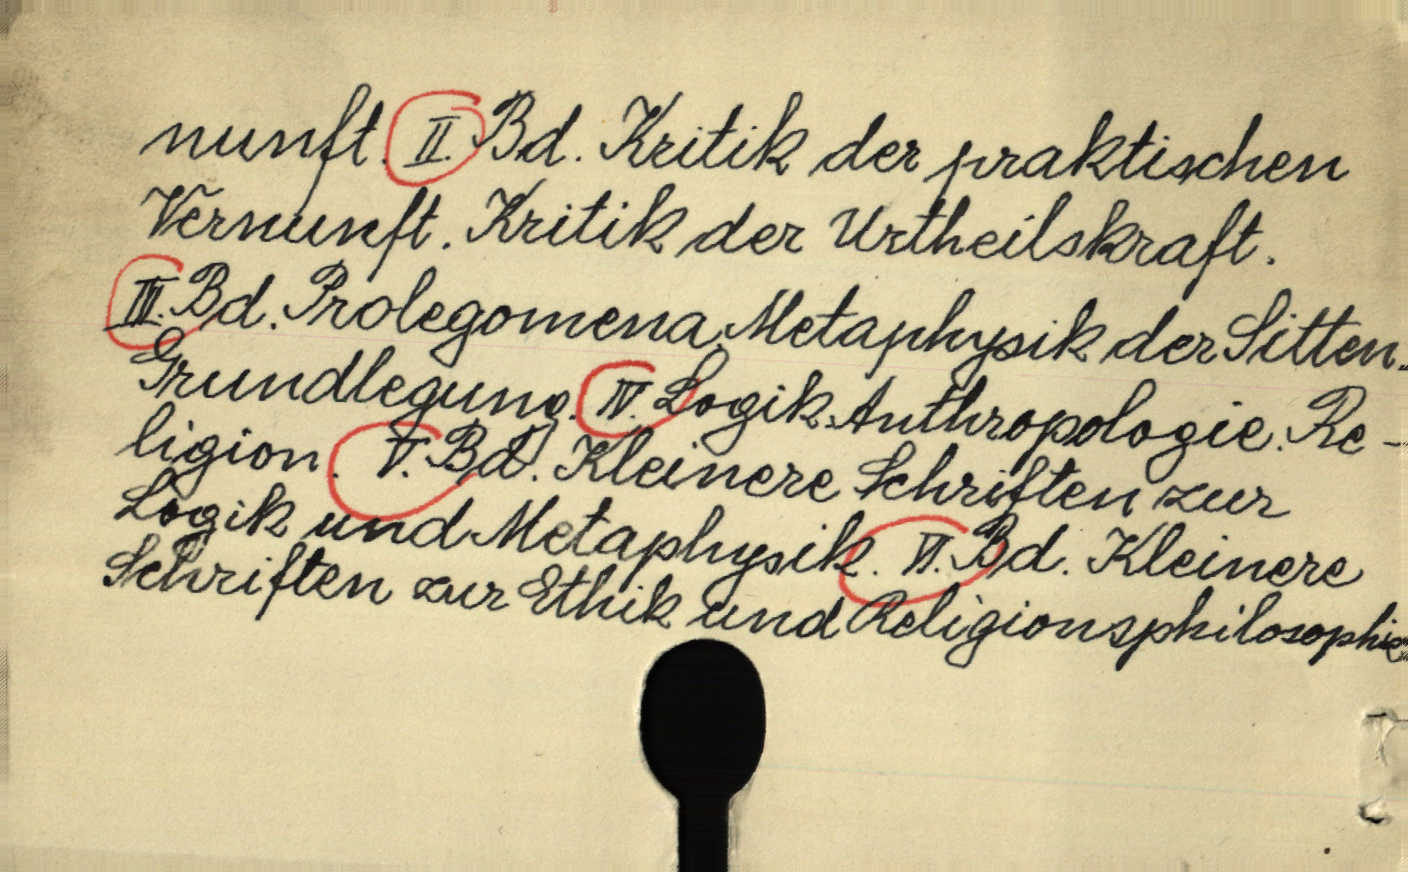 nunft. II. Bd. Kritik der praktischen
Vernunft. Kritik der Urtheilskraft.
III. Bd. Prolegomena, Metaphysik der Sitten.
Grundlegung. IV. Logik. Anthropologie. Re-
ligion. V. Bd. Kleinere Schriften zur
Logik und Metaphysik. VI. Bd. Kleinere
Schriften zur Ethik und Religionsphilosophie